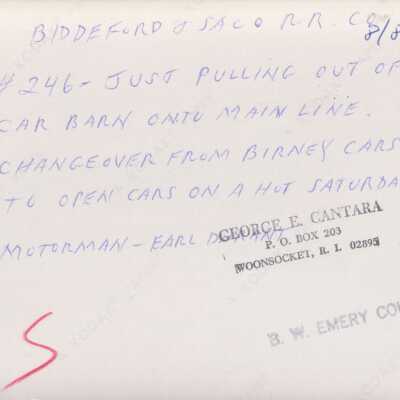 BIDDEFORD & SACO R.R. CO.
8/8
# 246 - JUST PULLING OUT OF
CAR BARN ONTO MAIN LINE.
CHANGEOVER FROM BIRNEY CARS
TO OPEN CARS ON A HOT SATURDA
MOTORMAN - EARL
GEORGE E. CANTARA
P. O. BOX 203
WOONSOCKET, R. I. 02895
B. W. EMERY COL
S